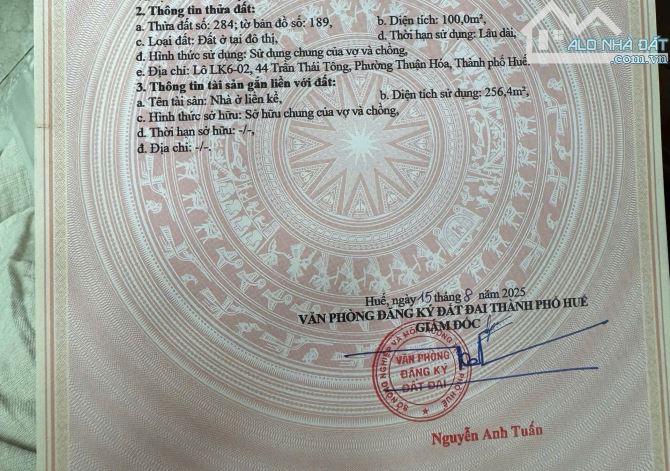 2. Thông tin thửa đất:
a. Thửa đất số: 284; tờ bản đồ số: 189, b. Diện tích: 100,0m²,
c. Loại đất: Đất ở tại đô thị, d. Thời hạn sử dụng: Lâu dài,
đ. Hình thức sử dụng: Sử dụng chung của vợ và chồng,
e. Địa chỉ: Lô LK6-02, 44 Trần Thái Tông, Phường Thuận Hóa, Thành phố Huế.
3. Thông tin tài sản gắn liền với đất:
a. Tên tài sản: Nhà ở liền kề, b. Diện tích sử dụng: 256,4m²,
c. Hình thức sở hữu: Sở hữu chung của vợ và chồng,
d. Thời hạn sở hữu: -/-,
đ. Địa chỉ: -/-.
ALO NHÀ ĐẤT
.com.vn
Huế, ngày 15 tháng 8 năm 2025
VĂN PHÒNG ĐĂNG KÝ ĐẤT ĐAI THÀNH PHỐ HUẾ
GIÁM ĐỐC
SỞ NÔNG NGHIỆP VÀ MÔI TRƯỜNG PHỐ HUẾ
VĂN PHÒNG
ĐĂNG KÝ
ĐẤT ĐAI
Nguyễn Anh Tuấn